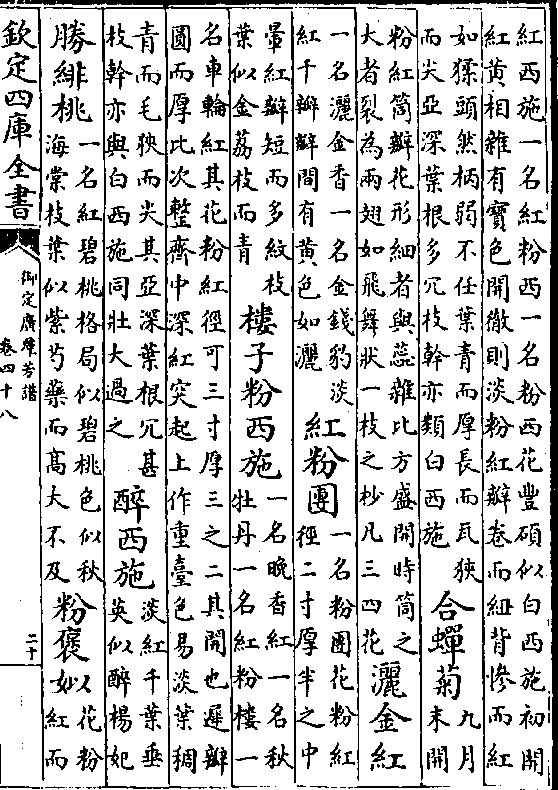 紅西施一名紅粉西一名粉西花豐碩似白西施初開
紅黃相雜有寶色開徹則淡粉紅瓣卷而紐背慘而紅
如猱頭然柄弱不任葉青而厚長而瓦狹
而尖亞深葉根多冗枝幹亦類白西施
合蟬菊
九月
末開
粉紅筒瓣花形細者與蕊雜比方盛開時筒之
大者裂為兩翅如飛舞狀一枝之杪凡三四花
灑金紅
一名灑金香一名金錢豹淡
紅千瓣瓣間有黃色如灑
紅粉團
一名粉團花粉紅
徑二寸厚半之中
暈紅瓣短而多紋枝
葉似金荔枝而青
樓子粉西施
一名晚香紅一名秋
牡丹一名紅粉樓一
名車輪紅其花粉紅徑可三寸厚三之二其開也遲瓣
圓而厚比次整齊中深紅突起上作重臺色易淡葉稠
青而毛鞅而尖其亞深葉根冗甚
枝幹亦與白西施同壯大過之
醉西施
淡紅千葉垂
英似醉楊妃
勝緋桃
一名紅碧桃格局似碧桃色似秋
海棠枝葉似紫芍藥而髙大不及
粉褒姒
花粉
紅而
欽定四庫全書
御定廣羣芳譜
卷四十八
二十